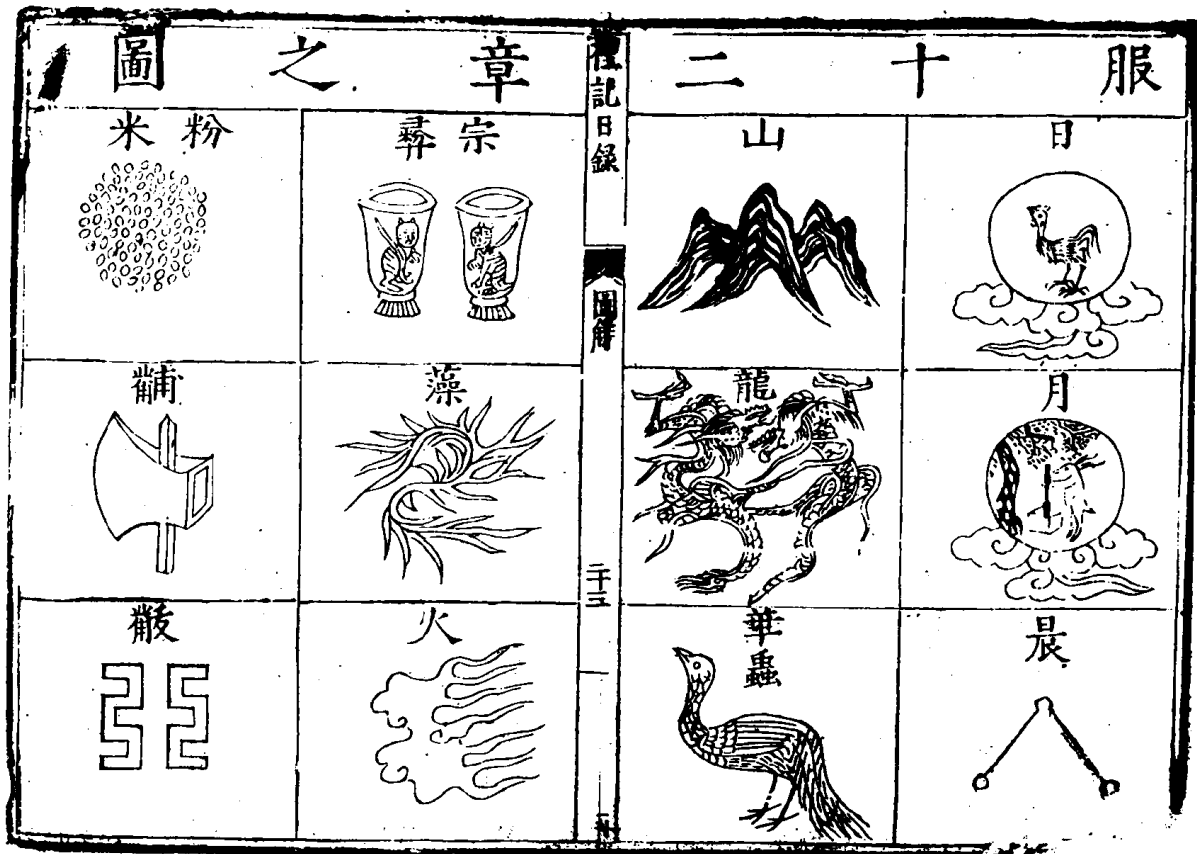 服十二章之圖
日
月
晨
山
龍
華蟲
禮記目録
圖解
二十三
宗彝
藻
火
粉米
黼
黻